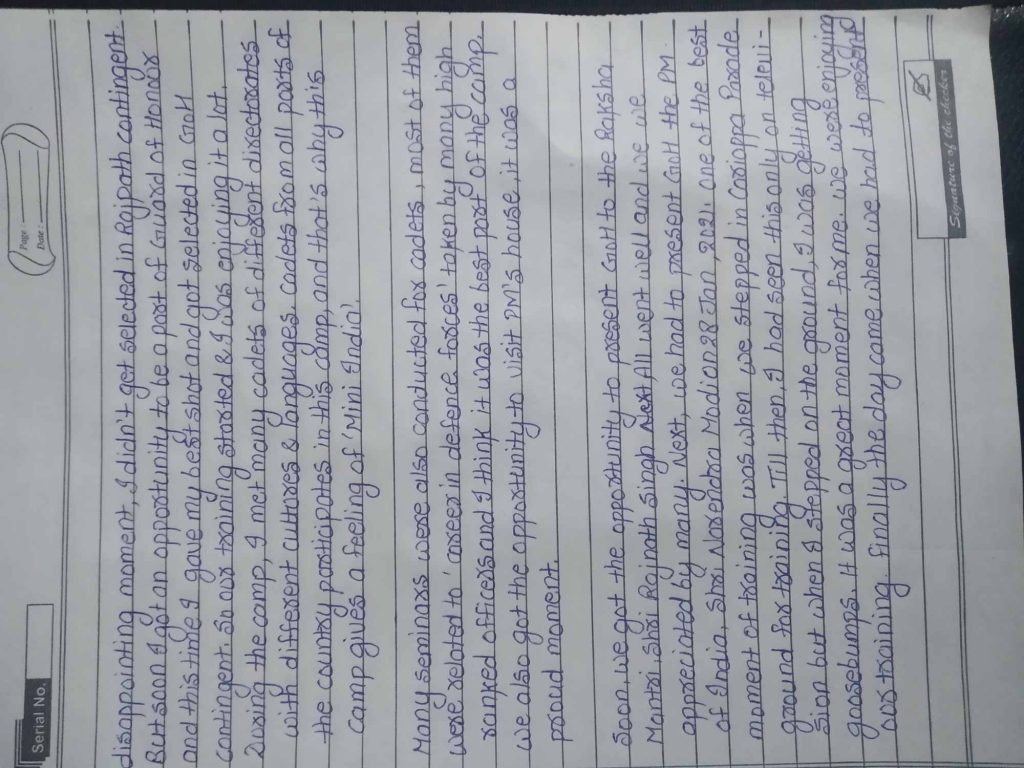 Serial No.
Page :
Date :
disappointing moment, I didn't get selected in Rajpath contingent.
But soon I got an opportunity to be a part of Guard of Honour
and this time I gave my best shot and got selected in GoH
contingent. So our training started & I was enjoying it a lot.
During the camp, I met many cadets of different directorates
with different cultures & languages. Cadets from all parts of
the country participates in this camp, and that's why this
camp gives a feeling of 'Mini India'.
Many seminars were also conducted for cadets, most of them
were related to 'career in defence forces' taken by many high
ranked officers and I think it was the best part of the camp.
We also got the opportunity to visit PM's house, it was a
proud moment.
Soon, we got the opportunity to present GoH to the Raksha
Mantri, Shri Rajnath Singh. All went well and we were
appreciated by many. Next, we had to present GoH the PM
of India, Shri Narendra Modi on 28 Jan, 2021. One of the best
moment of training was when we stepped in Cariappa Parade
ground for training. Till then I had seen this only on televi-
sion but when I stepped on the ground, I was getting
goosebumps. It was a great moment for me. We were enjoying
our training. Finally the day came when we had to present
Signature of the checker